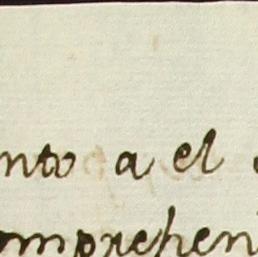 nto a el
omprehen